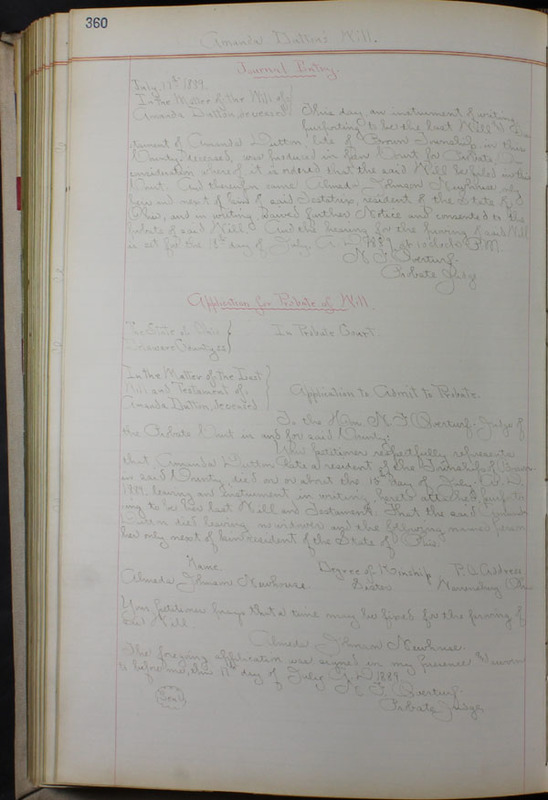 360
Amanda Dutton's Will.
Journal Entry.
July 17th 1889.
In the Matter of the Will of
Amanda Dutton, deceased
This day an instrument of writing
purporting to be the last Will &
tament of Amanda Dutton late of Brown Township in this
County deceased, was produced in open Court for Probate,
consideration whereof it is ordered that the said Will be filed in this
Court. And thereupon came Almeda Johnson Newhouse only
heir and next of kin of said Testatrix, resident of the State of
Ohio, and in writing waived further Notice and consented to the
Probate of said Will. And the hearing for the proving of said Will
is set for the day of July A.D. 1889 at 10 o'clock M.
N. F. Overturf.
Probate Judge
Application for Probate of Will.
The State of Ohio
Delaware County ss
In Probate Court.
In the Matter of the Last
Will and Testament of
Amanda Dutton, deceased
Application to Admit to Probate.
To the Hon. N. F. Overturf, Judge of
the Probate Court in and for said County:
Your petitioner respectfully represents
that Amanda Dutton late a resident of the Township of Brown
in said County, died on or about the 15th day of July A.D.
1889. leaving an Instrument in writing, hereto attached, purport-
ing to be her last Will and Testament. That the said Amanda
Dutton died leaving no widower and the following named person
her only next of kin resident of the State of Ohio.
Name. Degree of Kinship P.O. Address
Almeda Johnson Newhouse. Sister
Your petitioner prays that a time may be fixed for the proving of
said Will
Almeda Johnson Newhouse.
The foregoing application was signed in my presence & sworn
to before me, this 17th day of July A.D. 1889.
N. F. Overturf.
Probate Judge
Seal